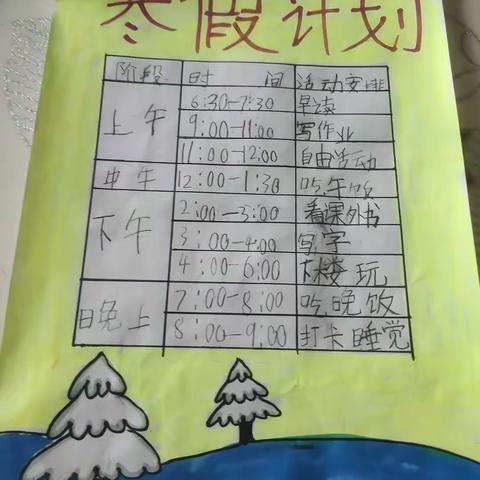 寒假计划
阶段 时间 活动安排
上午 6:30-7:30 早读
9:00-11:00 写作业
11:00-12:00 自由活动
中午 12:00-1:30 吃午饭
下午 2:00-3:00 看课外书
3:00-4:00 写字
4:00-6:00 下楼玩
晚上 7:00-8:00 吃晚饭
8:00-9:00 打卡睡觉